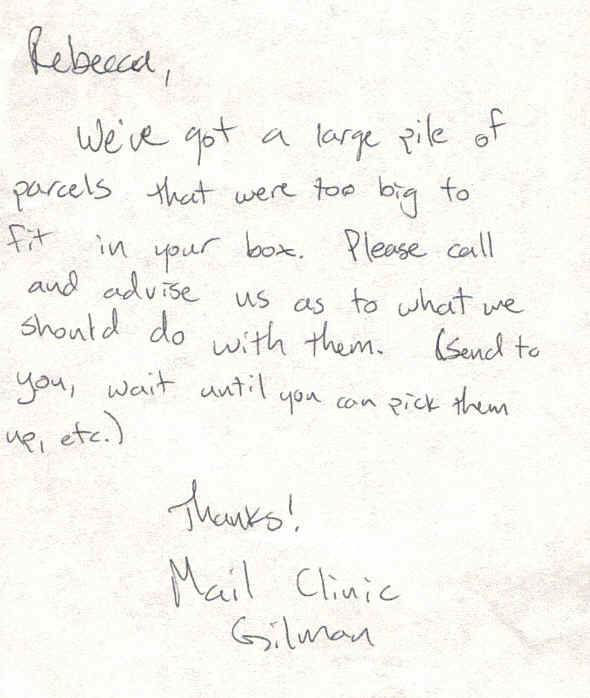 Rebecca,
We've got a large pile of
parcels that were too big to
fit in your box. Please call
and advise us as to what we
should do with them. (Send to
you, wait until you can pick them
up, etc.)
Thanks!
Mail Clinic
Gilman